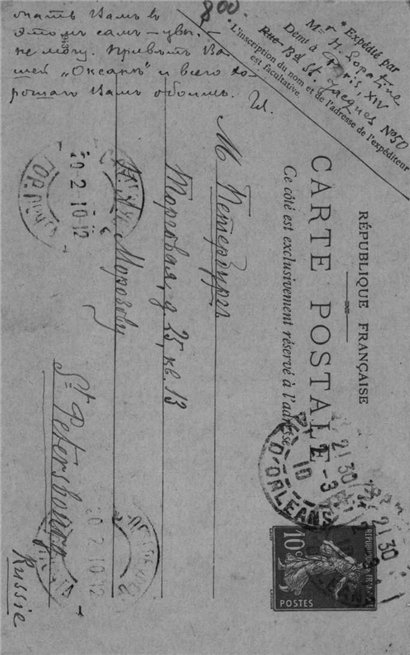 800.
жать Вамъ въ
этомъ самъ – увы –
не могу. Привѣтъ Ва-
шей „Оксанѣ“ и всего хо-
рошаго Вамъ обоимъ.
*Expédié par
Mr H. Lopatine
Demt à Paris, XIV
Rue Bd St. Jacques No 50
*L'inscription du nom et de l'adresse de l'expéditeur
est facultative.
RÉPUBLIQUE FRANÇAISE
CARTE POSTALE
Ce côté est exclusivement réservé à l'adresse
Петербургъ
Торговая, д 25, кв. 13
Морозову
St Petersbourg
Russie
20 2 10 12
D'ORLEANS
21 30
10c
POSTES